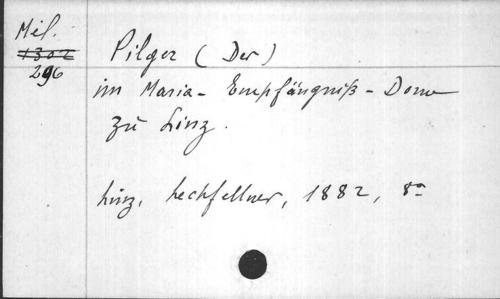 Mél.
1302
296
Pilger (Der)
im Maria-Empfängniß-Dome
zu Linz.
Linz, Lechfellner, 1882, 8°